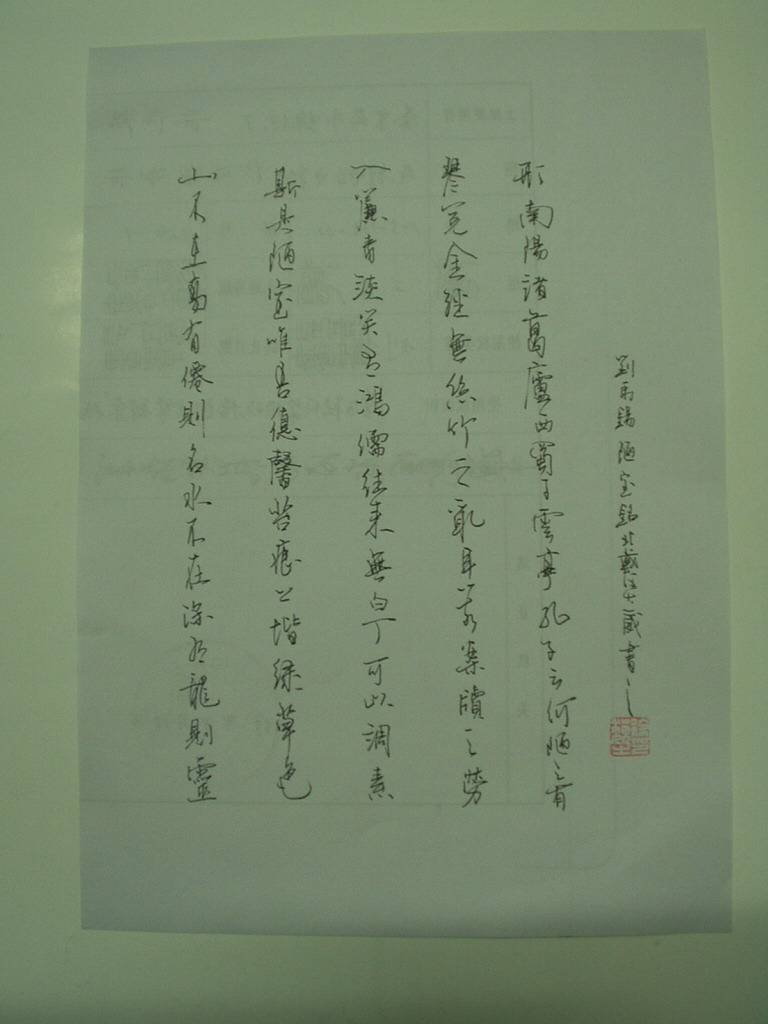 山不在高有僊則名水不在深有龍則靈
斯是陋室唯吾德馨苔痕上堦綠草色
入簾青談笑有鴻儒往來無白丁可以調素
琴閱金經無絲竹之亂耳无案牘之勞
形南陽諸葛廬西蜀子雲亭孔子云何陋之有
劉禹錫陋室銘歲書之